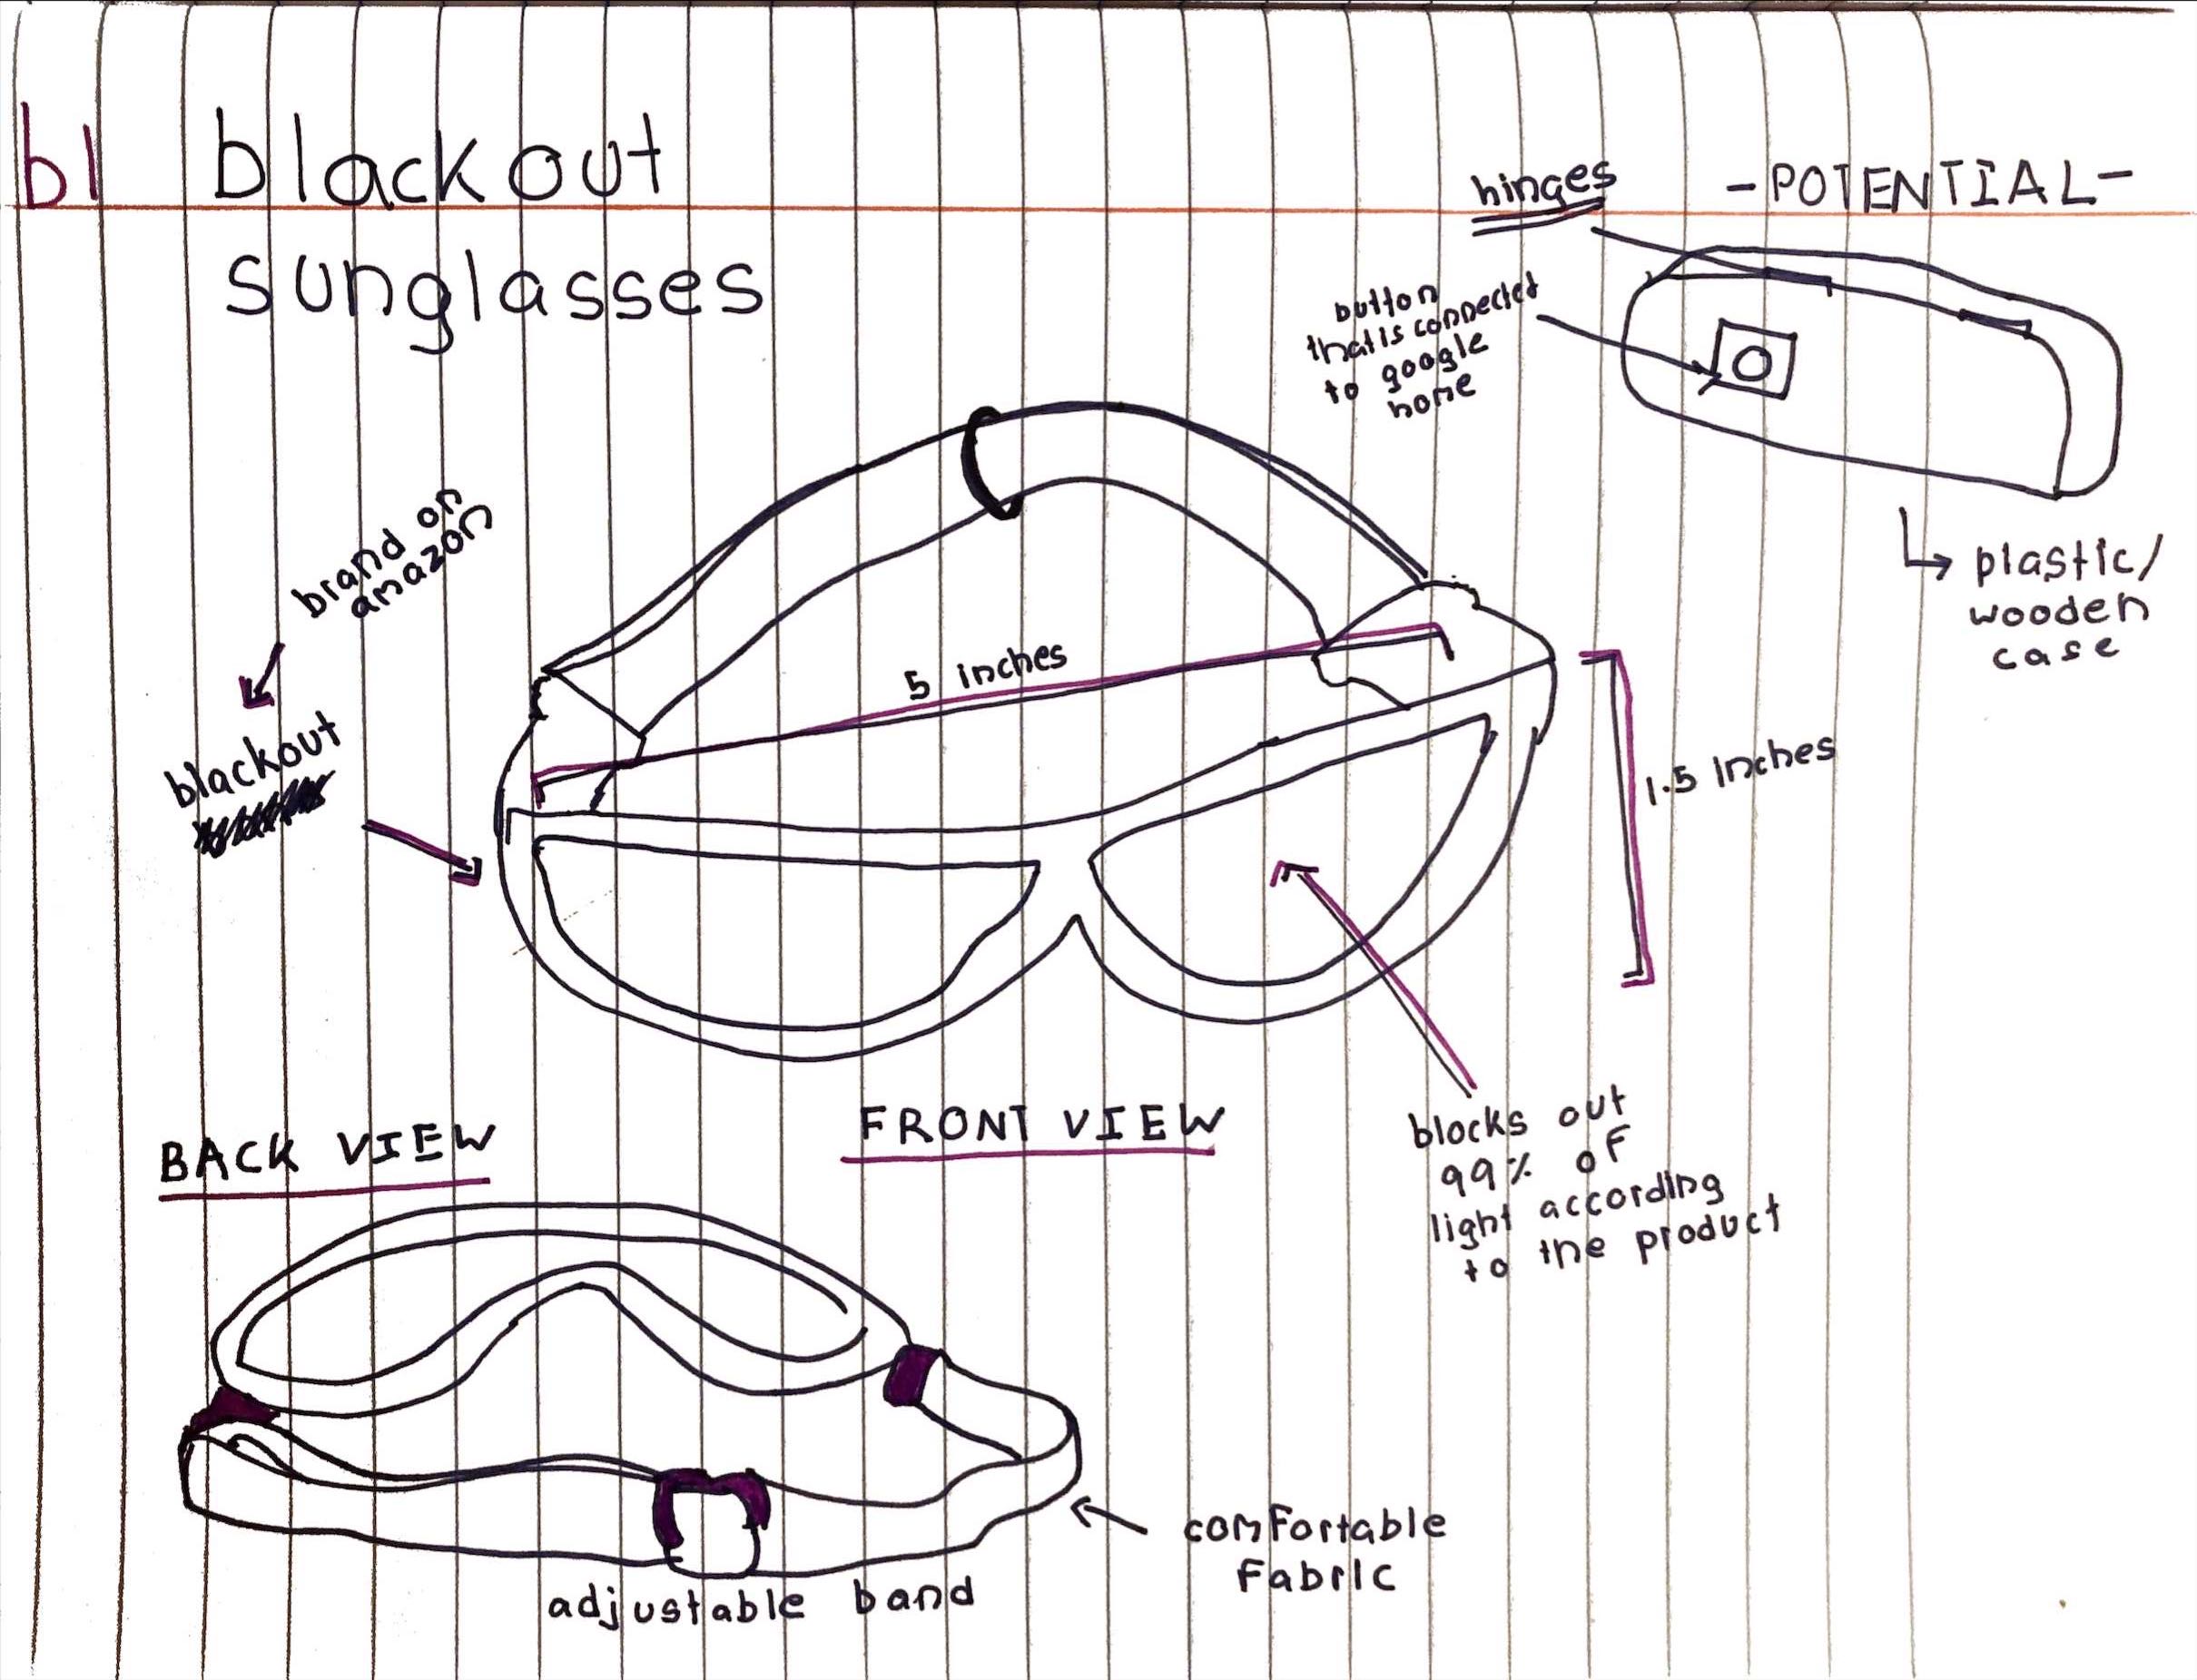 b1
blackout
sunglasses
hinges
-POTENTIAL-
button
that is connected
to google
home
plastic/
wooden
case
brand on
amazon
blackout
5 inches
1.5 inches
FRONT VIEW
BACK VIEW
blocks out
99% of
light according
to the product
comfortable
fabric
adjustable band